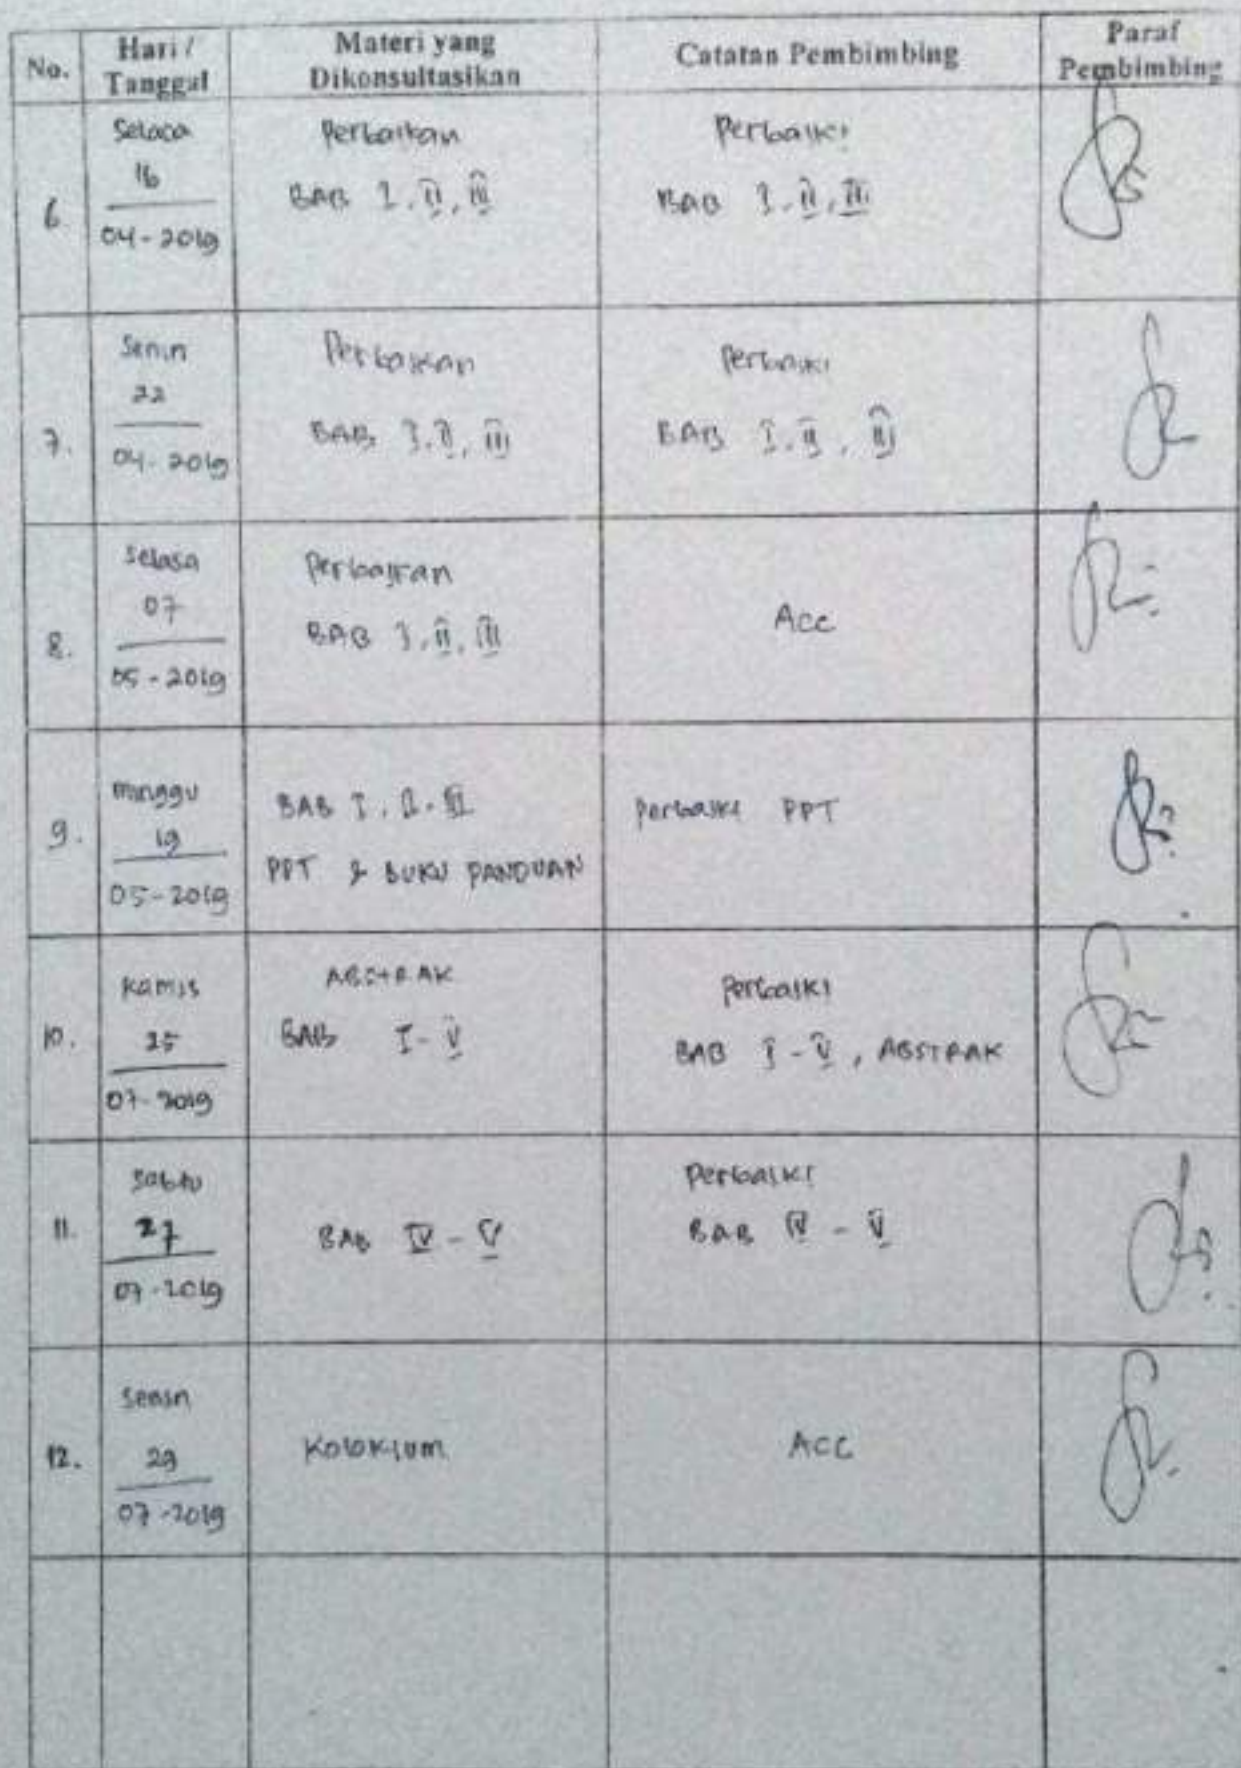 No. Hari / Tanggal Materi yang Dikonsultasikan Catatan Pembimbing Paraf Pembimbing
6. Selasa 16 04-2019
Perbaikan
BAB I, II, III
Perbaiki
BAB I, II, III
7. Senin 22 04-2019
Perbaikan
BAB I, II, III
Perbaiki
BAB I, II, III
8. Selasa 07 05-2019
Perbaikan
BAB I, II, III
Acc
9. Minggu 19 05-2019
BAB I, II, III
PPT & BUKU PANDUAN
Perbaiki PPT
10. Kamis 25 07-2019
ABSTRAK
BAB I - V
Perbaiki
BAB I - V, ABSTRAK
11. Sabtu 27 07-2019
BAB IV - V
Perbaiki
BAB IV - V
12. Senin 29 07-2019
Kolokium
ACC